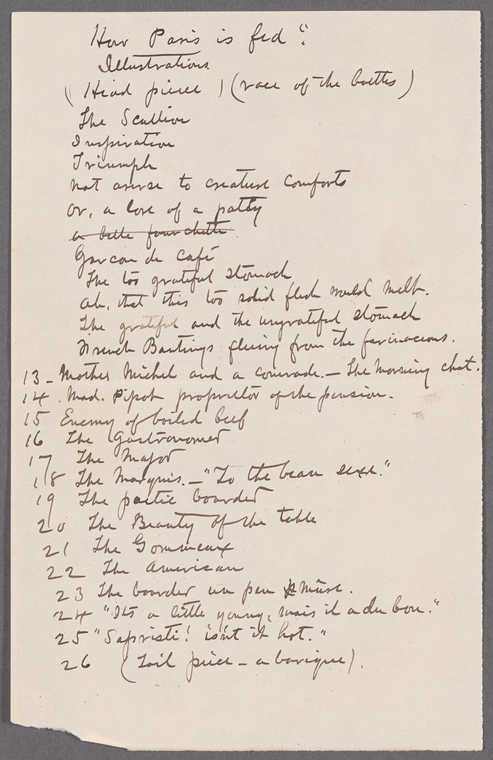 How Paris is fed":
Illustrations
(Head piece) (race of the bottles)
The Scullion
Inspiration
Triumph
Not averse to creature comforts
or, a love of a patty
a belle fourchette
Garcon de Café
The too grateful stomach
Ah, that this too solid flesh would melt.
The grateful and the ungrateful stomach
French Bantings fleeing from the farinaceous.
13 - Mother Michel and a comrade. - The Morning chat.
14. Mad. Pipot proprietor of the pension.
15 Enemy of boiled beef
16 The Gastronomer
17 The Major
18 The Marquis. - "To the beau sexe."
19 The poetic boarder
20 The Beauty of the table
21 The Gommeux
22 The American
23 The boarder un peu mûre.
24 "Its a little young, mais il a du bon."
25 "Sapristi! isn't it hot."
26 (Tail piece - a barique).